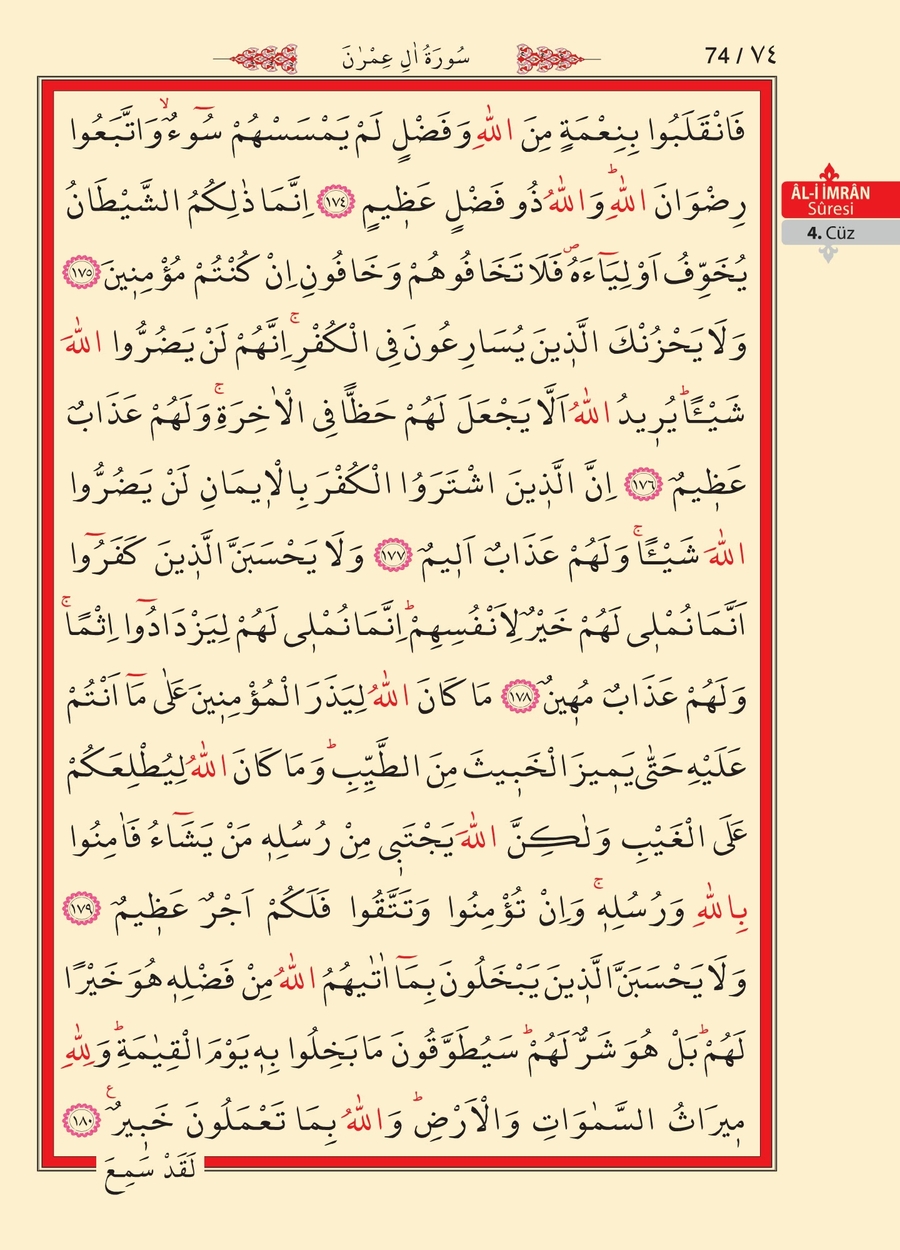 سُورَةُ اٰلِ عِمْرٰنَ
74 / ٧٤
ÂL-İ İMRÂN
Sûresi
4. Cüz
فَانْقَلَبُوا بِنِعْمَةٍ مِنَ اللّٰهِ وَفَضْلٍ لَمْ يَمْسَسْهُمْ سُٓوءٌۙ وَاتَّبَعُوا
رِضْوَانَ اللّٰهِۜ وَاللّٰهُ ذُو فَضْلٍ عَظ۪يمٍ ﴿١٧٤﴾ اِنَّمَا ذٰلِكُمُ الشَّيْطَانُ
يُخَوِّفُ اَوْلِيَٓاءَهُۖ فَلَا تَخَافُوهُمْ وَخَافُونِ اِنْ كُنْتُمْ مُؤْمِن۪ينَ ﴿١٧٥﴾
وَلَا يَحْزُنْكَ الَّذ۪ينَ يُسَارِعُونَ فِي الْكُفْرِۚ اِنَّهُمْ لَنْ يَضُرُّوا اللّٰهَ
شَيْـًٔاۜ يُر۪يدُ اللّٰهُ اَلَّا يَجْعَلَ لَهُمْ حَظًّا فِي الْاٰخِرَةِۚ وَلَهُمْ عَذَابٌ
عَظ۪يمٌ ﴿١٧٦﴾ اِنَّ الَّذ۪ينَ اشْتَرَوُا الْكُفْرَ بِالْا۪يمَانِ لَنْ يَضُرُّوا
اللّٰهَ شَيْـًٔاۚ وَلَهُمْ عَذَابٌ اَل۪يمٌ ﴿١٧٧﴾ وَلَا يَحْسَبَنَّ الَّذ۪ينَ كَفَرُٓوا
اَنَّمَا نُمْل۪ي لَهُمْ خَيْرٌ لِاَنْفُسِهِمْۜ اِنَّمَا نُمْل۪ي لَهُمْ لِيَزْدَادُٓوا اِثْمًاۚ
وَلَهُمْ عَذَابٌ مُه۪ينٌ ﴿١٧٨﴾ مَا كَانَ اللّٰهُ لِيَذَرَ الْمُؤْمِن۪ينَ عَلٰى مَٓا اَنْتُمْ
عَلَيْهِ حَتّٰى يَم۪يزَ الْخَب۪يثَ مِنَ الطَّيِّبِۜ وَمَا كَانَ اللّٰهُ لِيُطْلِعَكُمْ
عَلَى الْغَيْبِ وَلٰكِنَّ اللّٰهَ يَجْتَب۪ي مِنْ رُسُلِه۪ مَنْ يَشَٓاءُ فَاٰمِنُوا
بِاللّٰهِ وَرُسُلِه۪ۚ وَاِنْ تُؤْمِنُوا وَتَتَّقُوا فَلَكُمْ اَجْرٌ عَظ۪يمٌ ﴿١٧٩﴾
وَلَا يَحْسَبَنَّ الَّذ۪ينَ يَبْخَلُونَ بِمَٓا اٰتٰيهُمُ اللّٰهُ مِنْ فَضْلِه۪ هُوَ خَيْرًا
لَهُمْۜ بَلْ هُوَ شَرٌّ لَهُمْۜ سَيُطَوَّقُونَ مَا بَخِلُوا بِه۪ يَوْمَ الْقِيٰمَةِۜ وَلِلّٰهِ
م۪يرَاثُ السَّمٰوَاتِ وَالْاَرْضِۜ وَاللّٰهُ بِمَا تَعْمَلُونَ خَب۪يرٌ۟ ﴿١٨٠﴾
لَقَدْ سَمِعَ